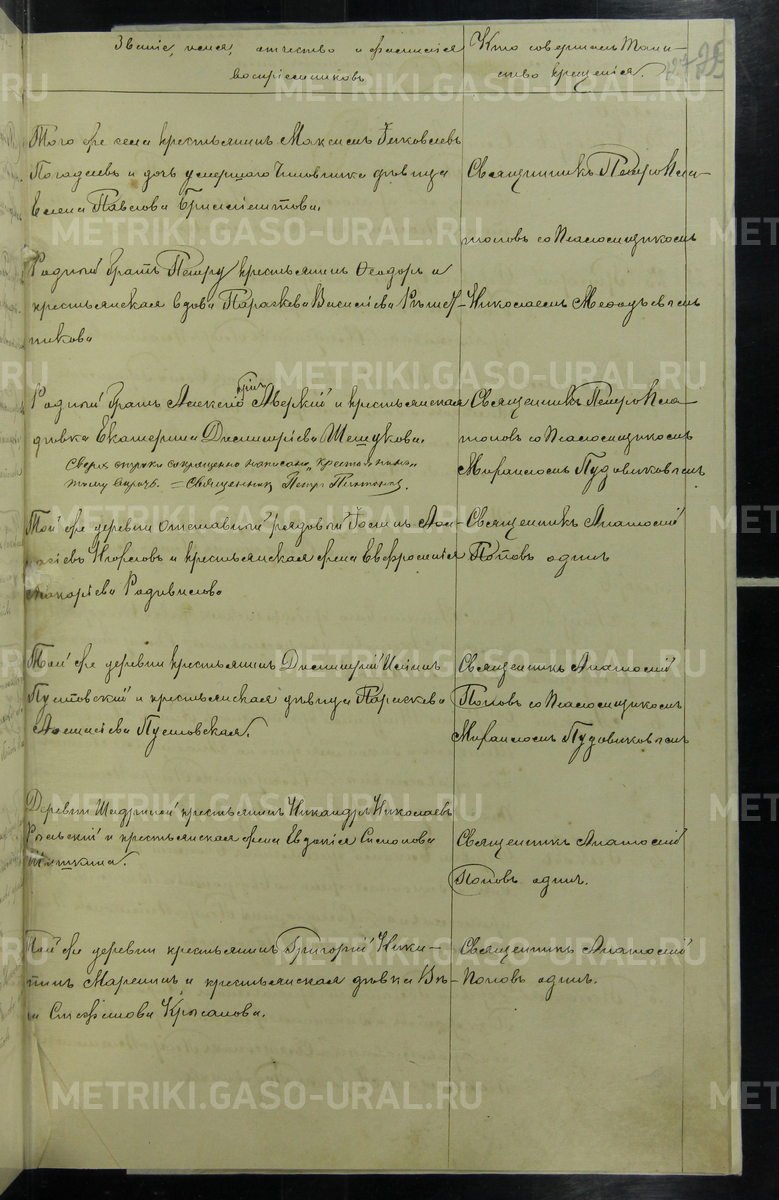 Званіе, имя, отчество и фамилія
воспріемниковъ
Кто совершалъ Таин-
ство крещенія.
Того же села крестьянинъ Максимъ Яковлевъ
и дочь умершаго Чиновника дѣвица
Елена Павлова
Священникъ Петръ Пла-
тоновъ со Псаломщикомъ
Родный братъ Петру крестьянинъ Ѳеодоръ и
крестьянская вдова Параскева Василіева Рѣшет-
никова
Николаемъ
Родный братъ Алексію Аверкій и крестьянская
дѣвка Екатерина Димитріева Шешукова.
Сверхъ строки сокращенно написано
тому вѣрить. = Священникъ Петръ Платоновъ.
Священникъ Петръ Пла
тоновъ со Псаломщикомъ
Михаиломъ Пудовиковымъ
Той же деревни отставный рядовый
и крестьянская жена Евфросинія
Макаріева Родивилова
Священникъ Анатолій
Поповъ одинъ
Той же деревни крестьянинъ Димитрій
Пустовскій и крестьянская дѣвица Параскева
Пустовская.
Священникъ Анатолій
Поповъ со Псаломщикомъ
Михаиломъ Пудовиковымъ
Деревни Шадриной крестьянинъ Никандръ Николаевъ
и крестьянская жена Евдокія Симонова
Священникъ Анатолій
Поповъ одинъ.
Той же деревни крестьянинъ Григорій Ники-
тинъ и крестьянская дѣвка Вѣ-
ра Стефанова
Священникъ Анатолій
Поповъ одинъ.
METRIKI.GASO-URAL.RU